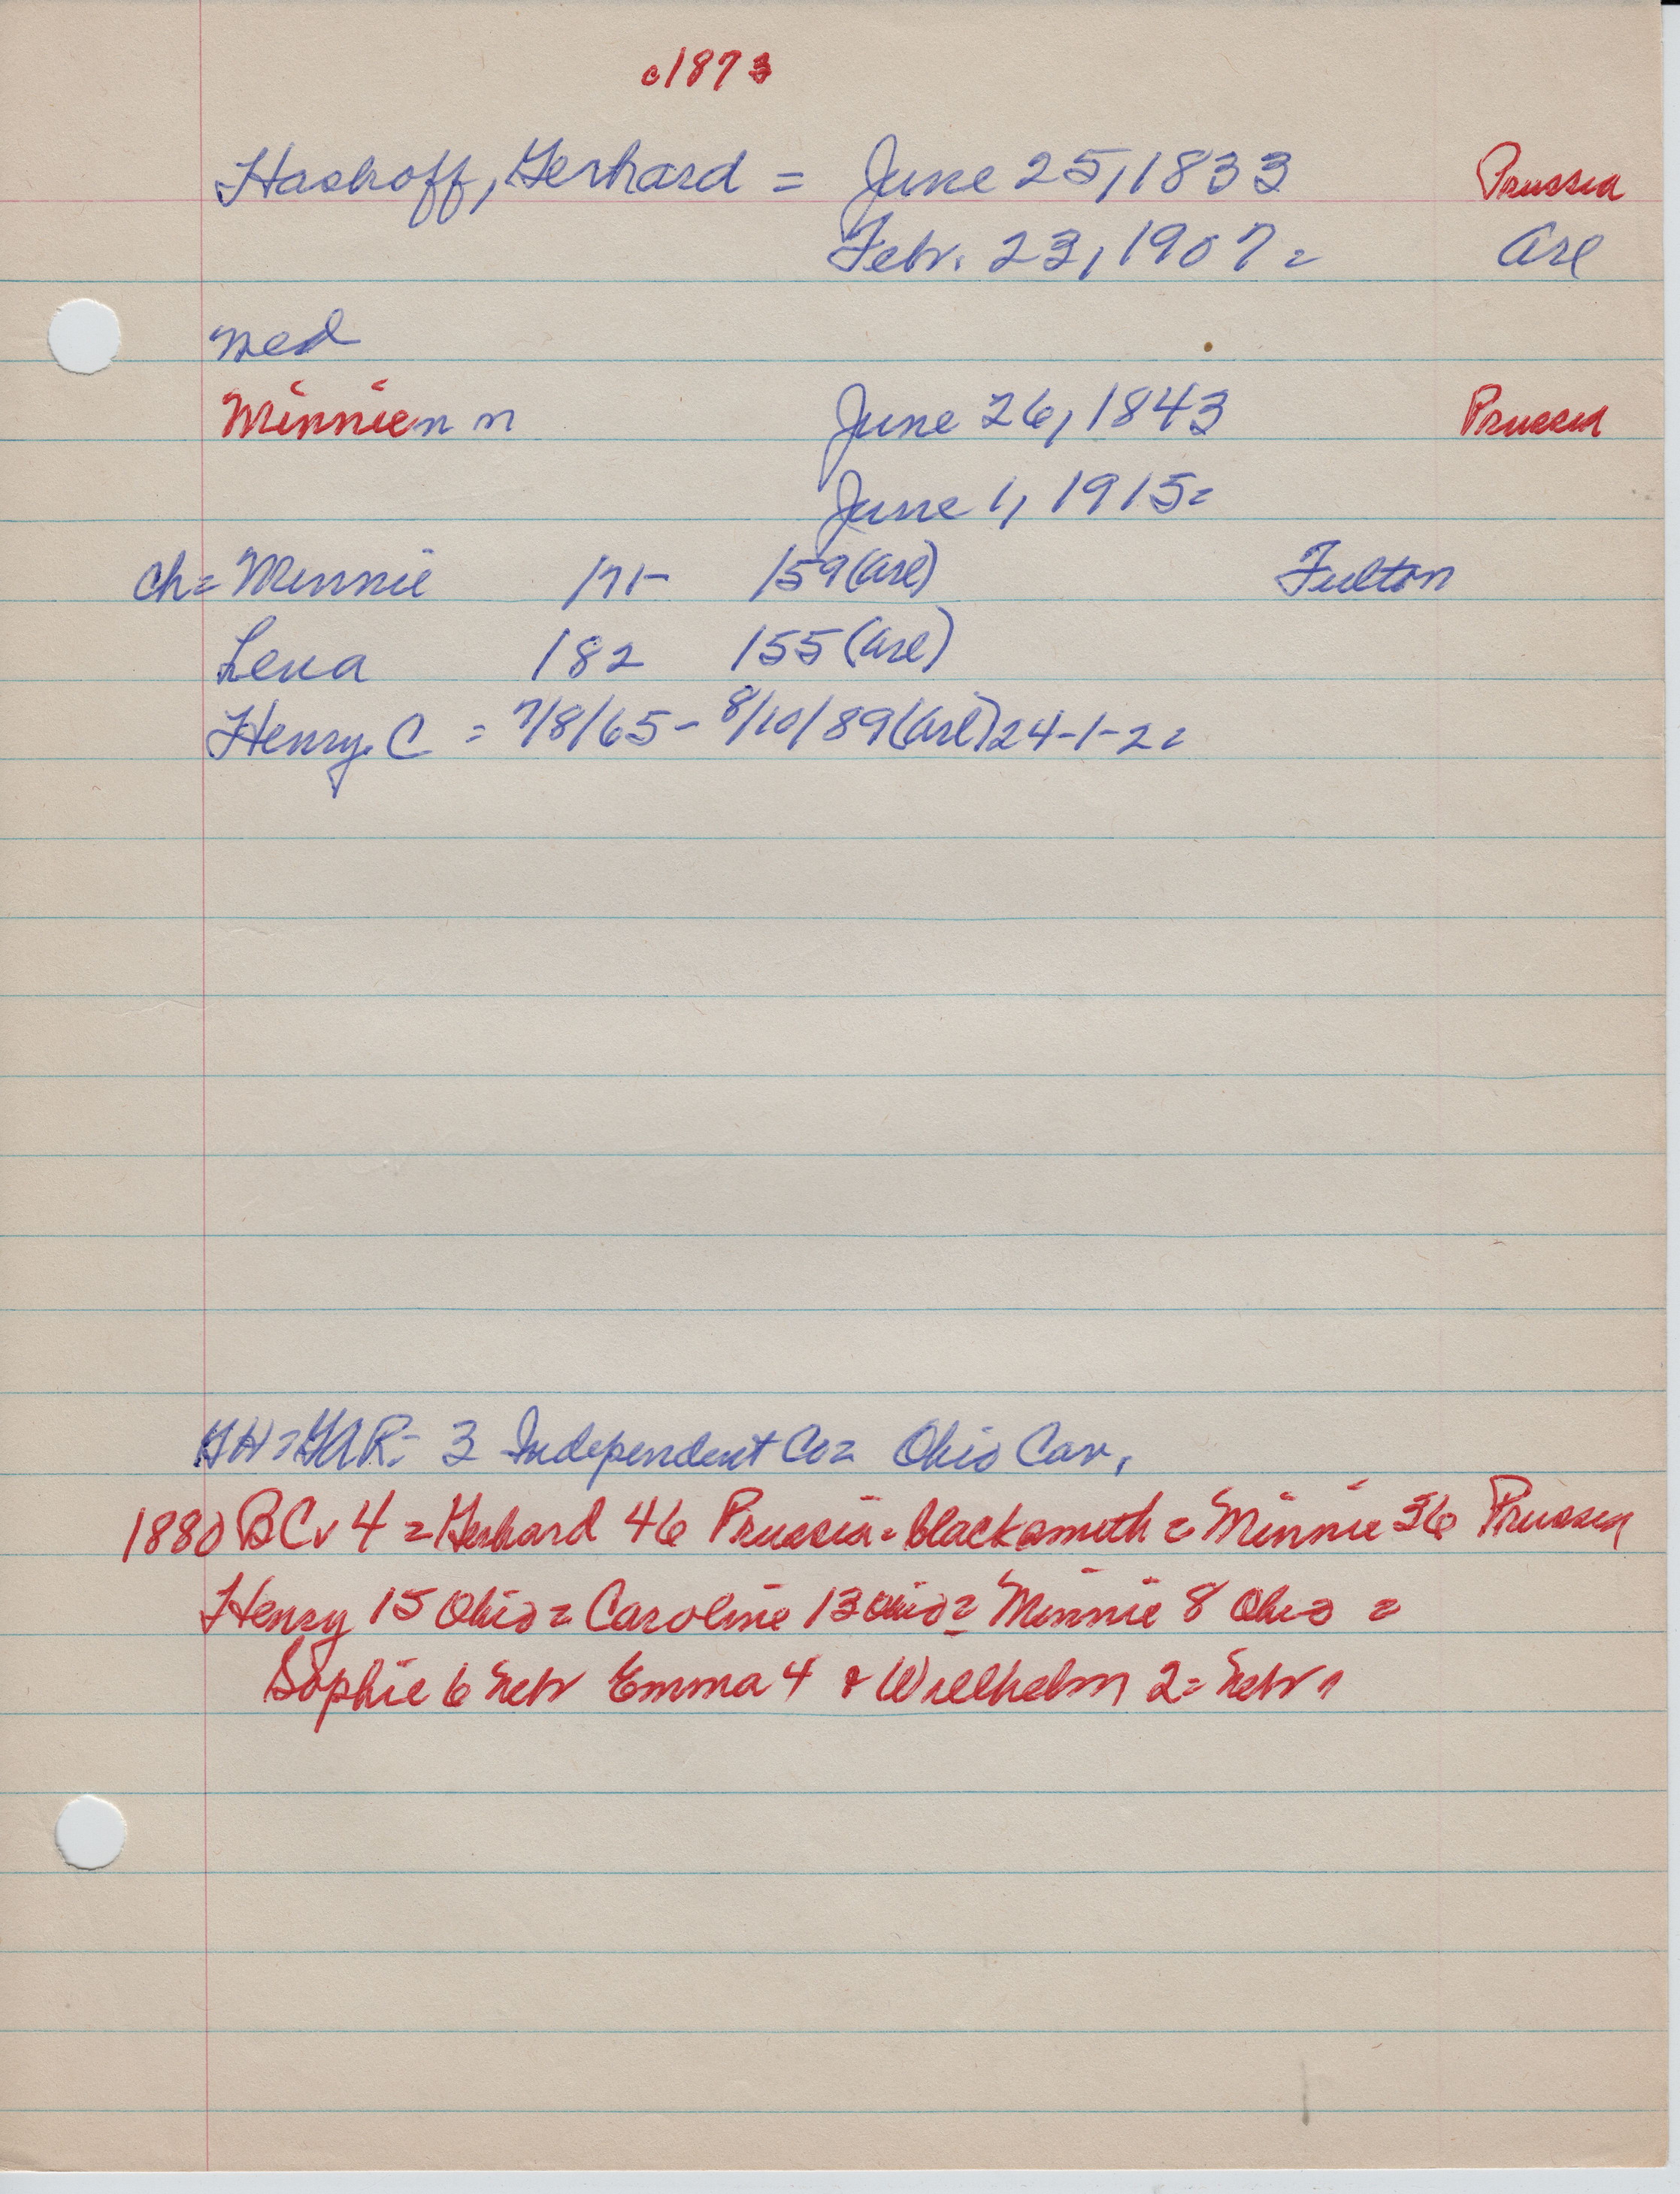 c1873
Hashoff, Gerhard = June 25, 1833 Prussia
Febr. 23, 1907 = Arl
med
Minnie n n June 26, 1843 Prussia
June 1, 1915=
ch= Minnie 171- 159 (Arl) Fulton
Lena 182 155 (Arl)
Henry. C = 7/8/65 - 8/10/89 (Arl) 24-1-2=
GH=GAR- 3 Independent Co= Ohio Cav.
1880 BCv 4 = Gerhard 46 Prussia = blacksmith = Minnie 36 Prussia
Henry 15 Ohio = Caroline 13 Ohio = Minnie 8 Ohio =
Sophie 6 Nebr Emma 4 & Willhelm 2 = Nebr